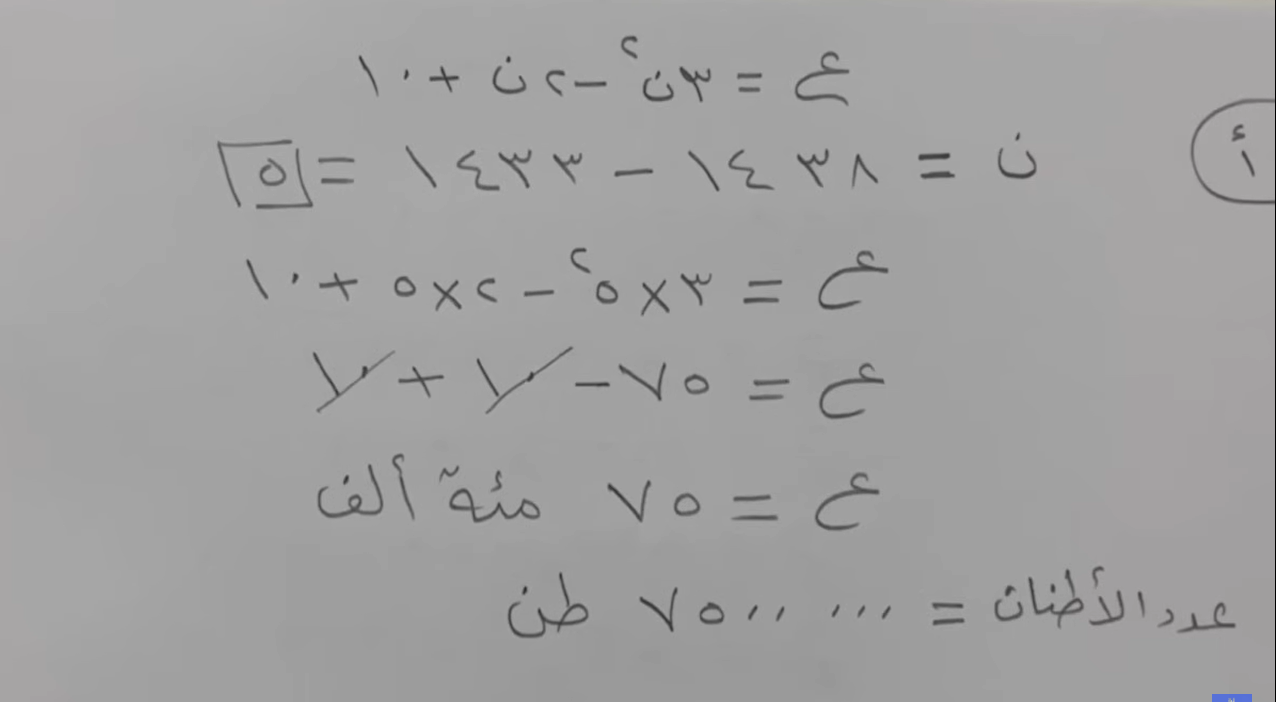 ع = ٣ن٢ - ٢ن + ١٠
أ
ن = ١٤٣٨ - ١٤٣٣ = ٥
ع = ٣ × ٥٢ - ٢ × ٥ + ١٠
ع = ٧٥ - ١٠ + ١٠
ع = ٧٥ مئة ألف
عدد الأطنان = ٧٥٠٠٠٠٠ طن